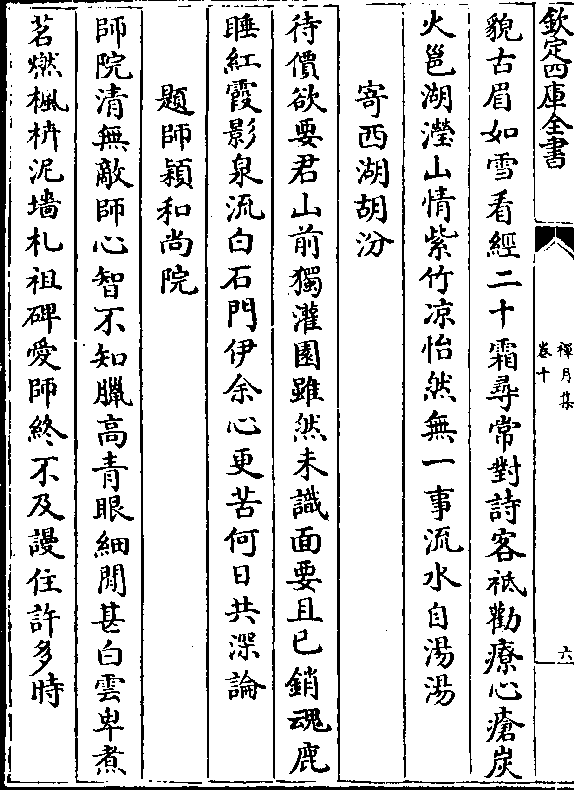 欽定四庫全書
禪月集
卷十
六
貌古眉如雪看經二十霜尋常對詩客祗勸療心瘡炭
火邕湖瀅山情紫竹凉怡然無一事流水自湯湯
寄西湖胡汾
待價欲要君山前獨灌園雖然未識面要且已銷魂鹿
睡紅霞影泉流白石門伊余心更苦何日共深論
題師穎和尚院
師院清無敵師心智不知臘高青眼細閒甚白雲卑煮
茗燃楓枿泥墻札祖碑愛師終不及謾住許多時